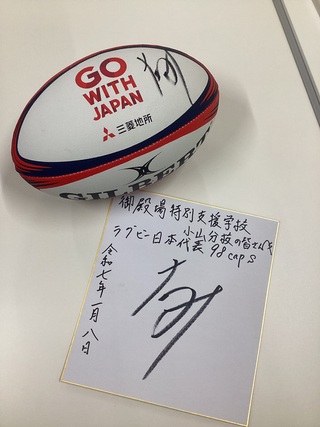 GO
WITH
JAPAN
三菱地所
GILBERT
御殿場特別支援学校
小山分校の皆さんへ
ラグビー日本代表 98 caps
令和七年一月八日